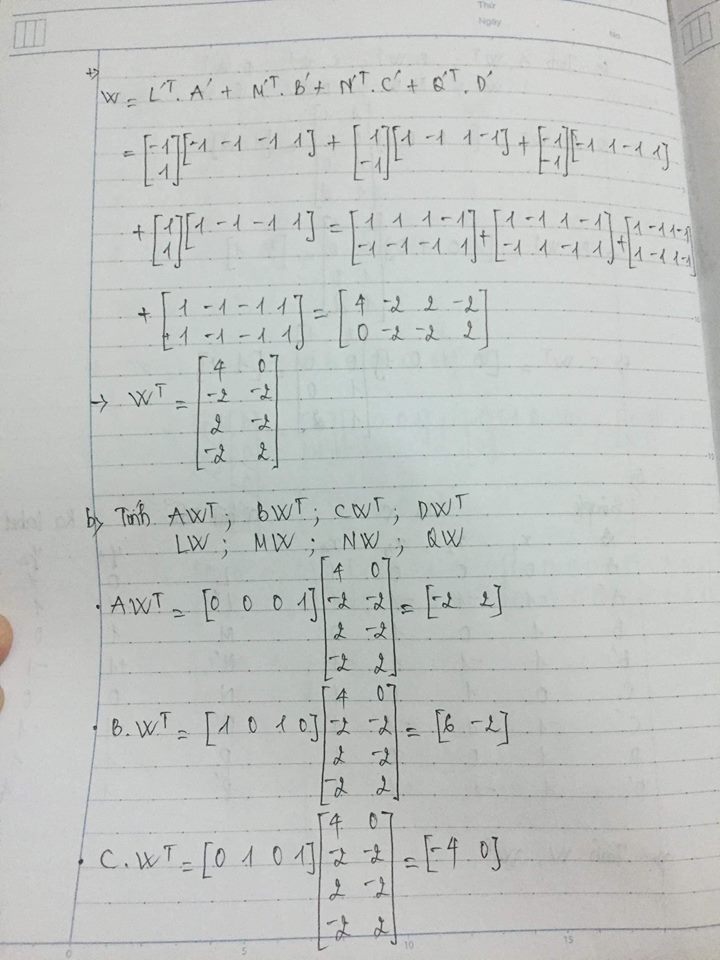 Thứ
Ngày
No.
+) W = L'ᵀ. A' + M'ᵀ. B' + N'ᵀ. C' + Q'ᵀ. D'
= [-1; 1] [-1 -1 -1 1] + [1; -1] [1 -1 1 -1] + [-1; -1] [-1 1 -1 1]
+ [1; 1] [1 -1 -1 1] = [1 1 1 -1; -1 -1 -1 1] + [1 -1 1 -1; -1 1 -1 1] + [1 -1 1 -1; 1 -1 1 -1]
+ [1 -1 -1 1; 1 -1 -1 1] = [4 -2 2 -2; 0 -2 -2 2]
→ Wᵀ = [4 0; -2 -2; 2 -2; -2 2]
b) Tính AWᵀ; BWᵀ; CWᵀ; DWᵀ
LW; MW; NW; QW
• AWᵀ = [0 0 0 1] [4 0; -2 -2; 2 -2; -2 2] = [-2 2]
• B.Wᵀ = [1 0 1 0] [4 0; -2 -2; 2 -2; -2 2] = [6 -2]
• C.Wᵀ = [0 1 0 1] [4 0; -2 -2; 2 -2; -2 2] = [-4 0]
0 5 10 15